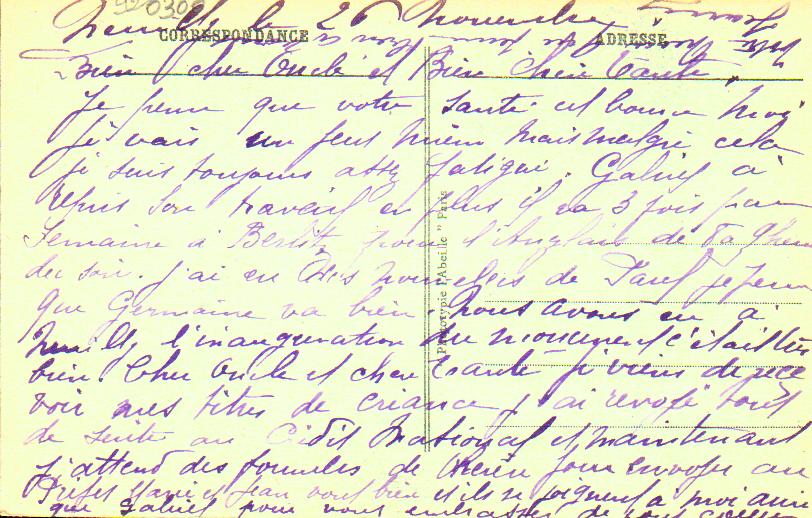 920309
le 26 novembre
CORRESPONDANCE
ADRESSE
Bien cher Oncle et Bien chère Tante,
Je pense que votre santé est bonne moi
je vais un peu mieux mais malgré cela
je suis toujours assez fatigué. Gabriel a
repris son travail en plus il va 3 fois par
semaine à Berlitz pour l'Anglais de
du soir. j'ai eu nouvelles de Paul je pense
que Germaine va bien. Nous avons eu à
Neuilly l'inauguration du monument c'était très
bien. Cher Oncle et chère Tante je viens de rece
voir mes titres de créance j'ai renvoyé tout
de suite au Crédit National et maintenant
j'attend des formules de pour envoyer au
Préfet Marie et Jean vont bien et ils se joignent à moi ainsi
que Gabriel pour vous embrasser de tout
Phototypie l'Abeille " Paris